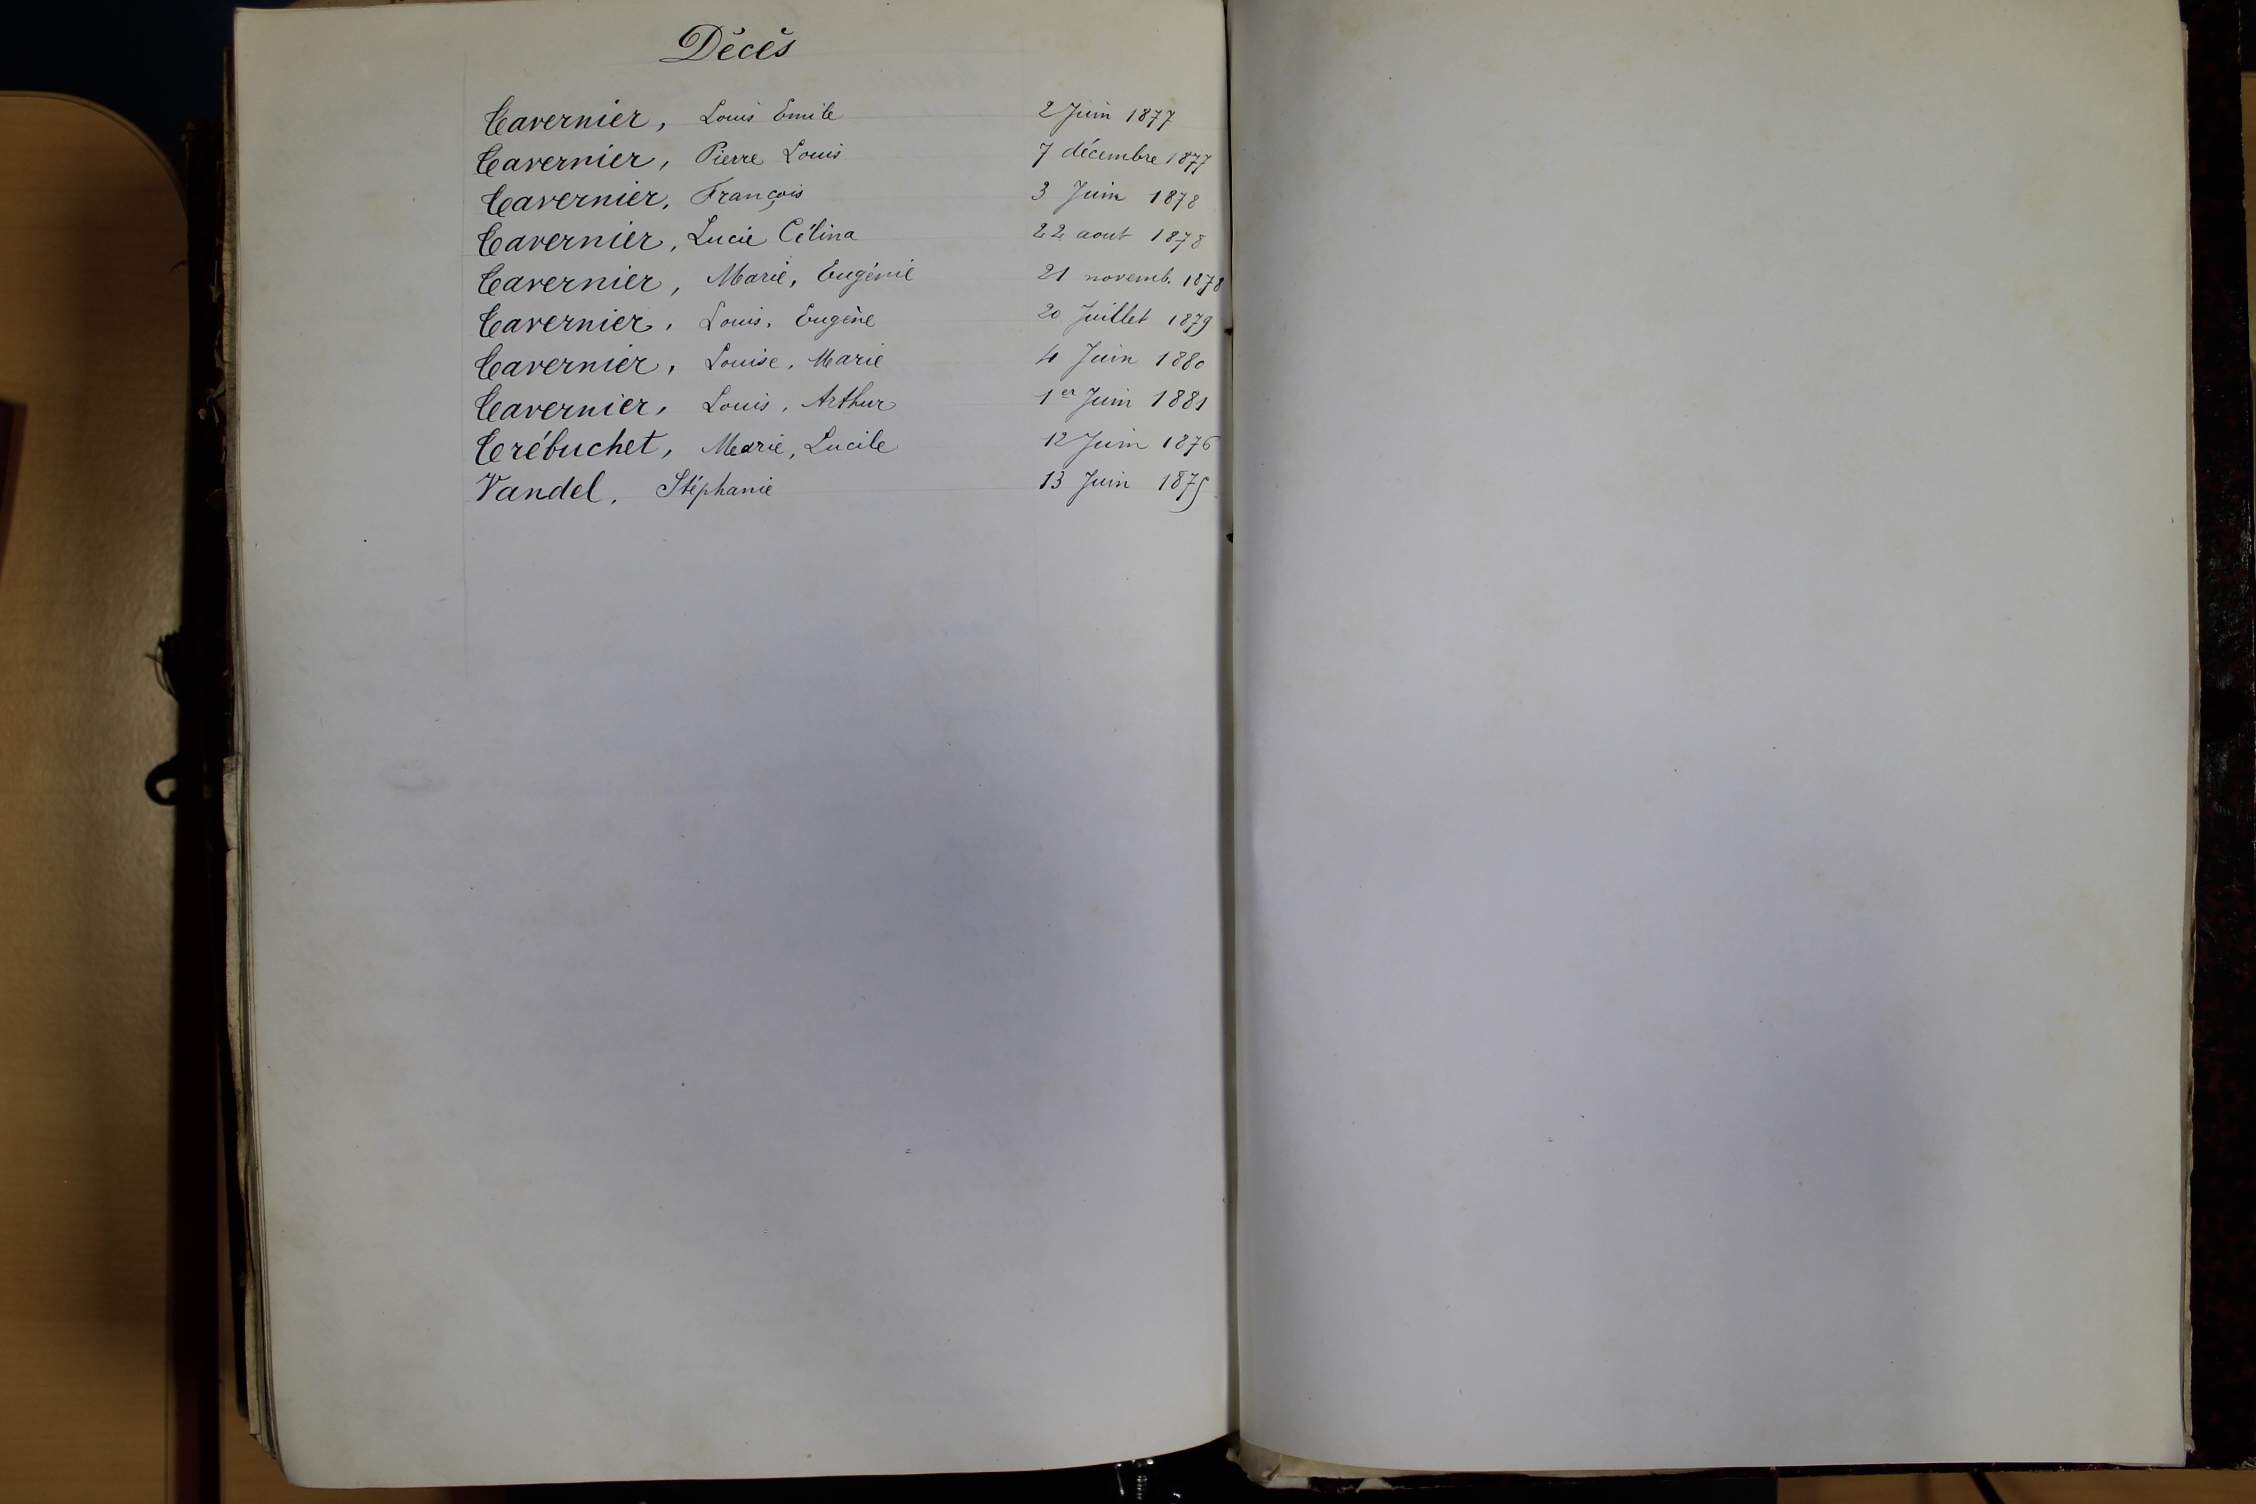 Décès
Tavernier, Louis Emile 2 Juin 1877
Tavernier, Pierre Louis 7 décembre 1877
Tavernier, François 3 Juin 1878
Tavernier, Lucie Célina 22 aout 1878
Tavernier, Marie, Eugénie 21 novemb. 1878
Tavernier, Louis, Eugène 20 Juillet 1879
Tavernier, Louise, Marie 4 Juin 1880
Tavernier, Louis, Arthur 1er Juin 1881
Trébuchet, Marie, Lucile 12 Juin 1876
Vandel, Stéphanie 13 Juin 1875